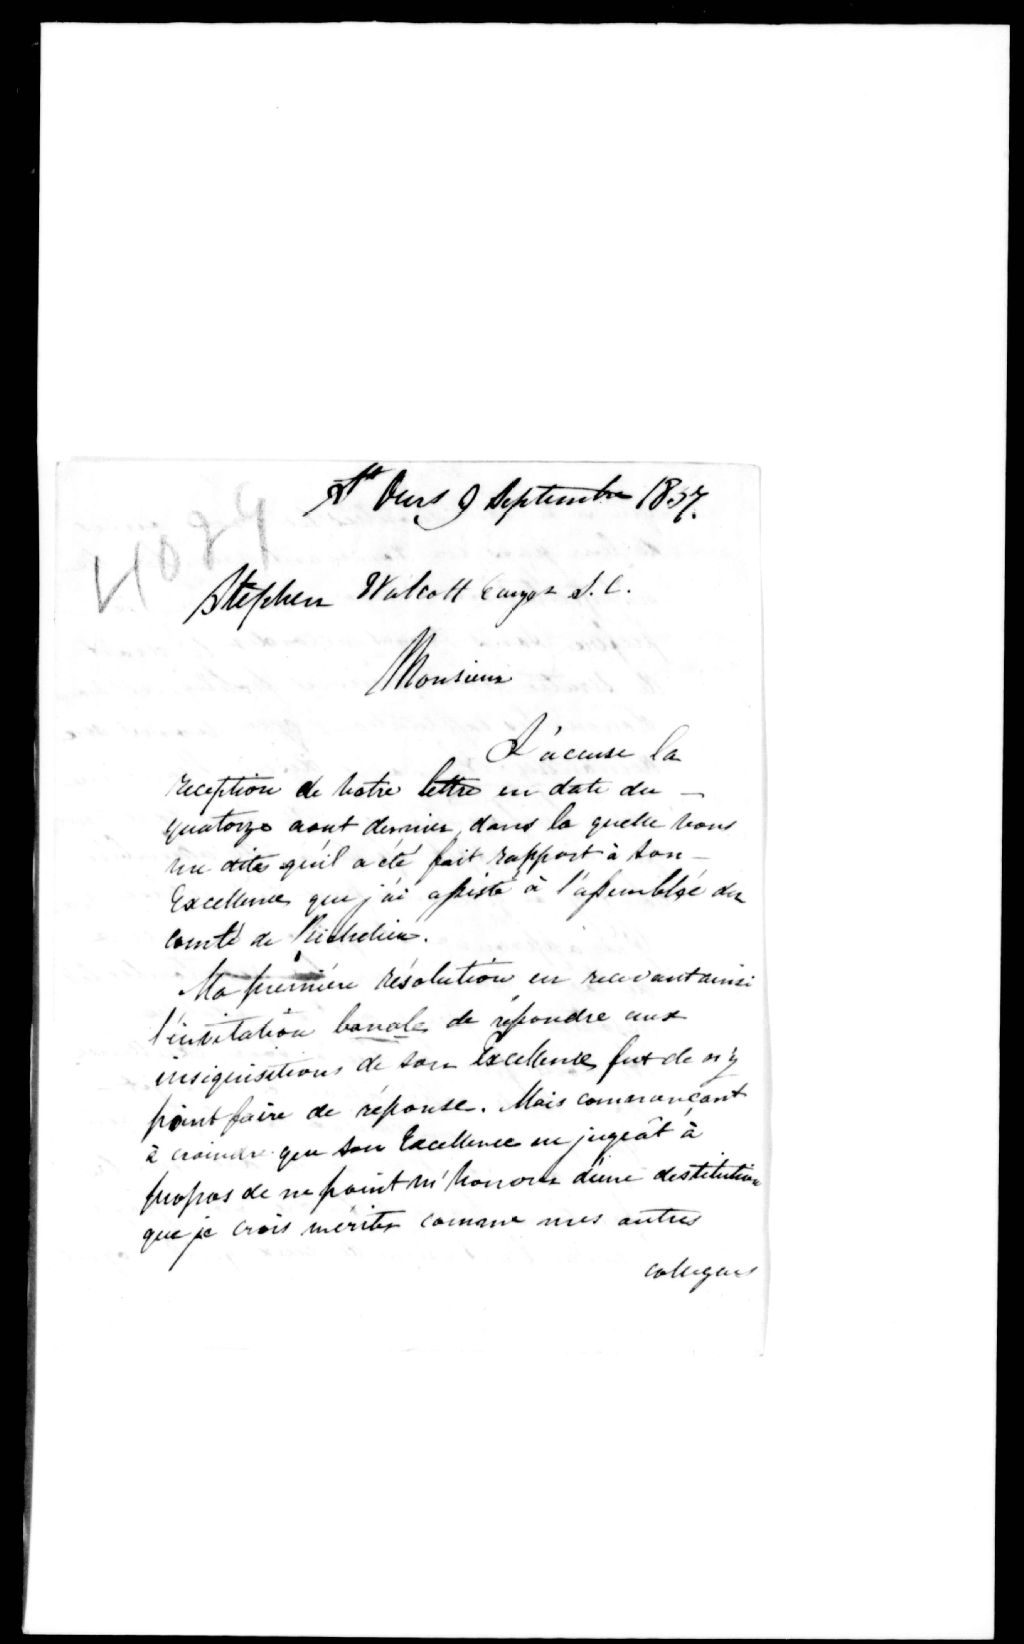 St Ours 9 Septembre 1837.
Stephen Walcott S. C.
Monsieur
J'acuse la
reception de votre lettre en date du
quatorze aout dernier, dans la quelle vous
me dites qu'il a été fait rapport à Son
Excellence que j'ai assisté à l'assemblée du
comté de Richelieu.
Ma première résolution en recevant ainsi
l'invitation banale de répondre aux
insiquisitions de son Excellence fut de n'y
point faire de réponse. Mais commançant
à craindre que Son Excellence en jugeât à
propos de ne point m'honorer d'une destitution
que je crois mériter comme mes autres
collegues